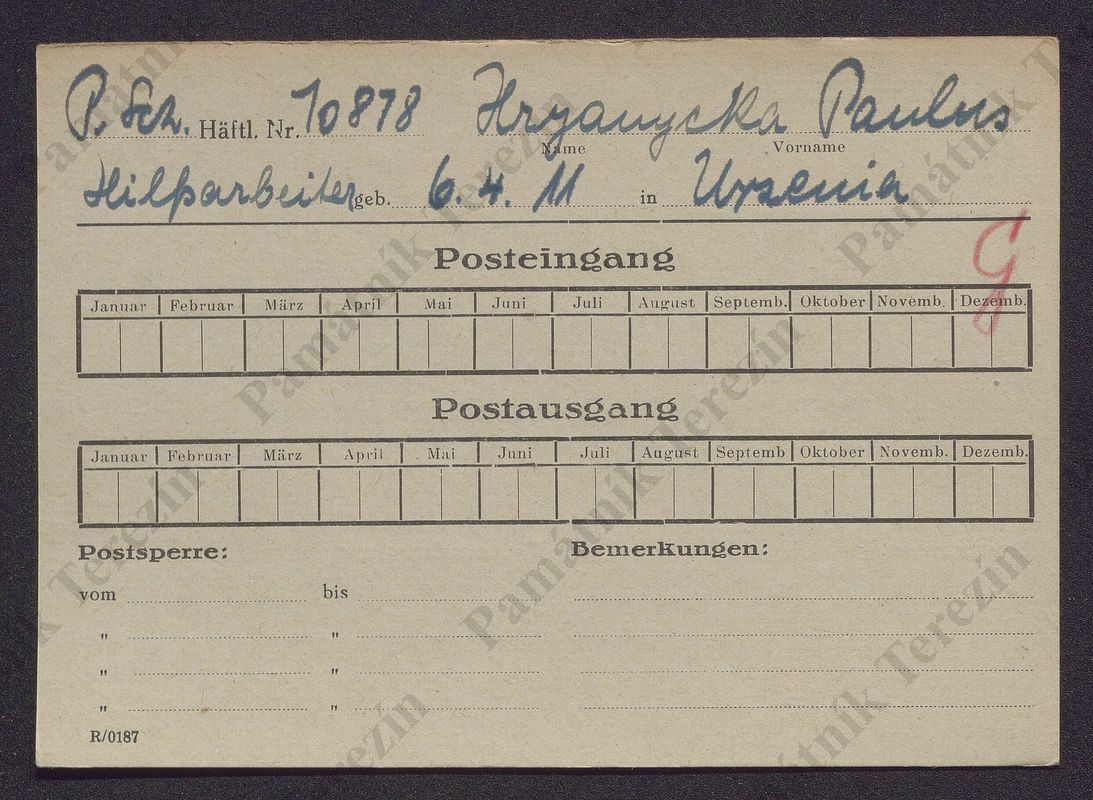 P. Sch. Häftl. Nr. 10878 Hryanycka Paulus
Name Vorname
Hilfsarbeiter geb. 6.4.11 in Ursenia
G
Posteingang
Januar Februar März April Mai Juni Juli August Septemb. Oktober Novemb. Dezemb.
Postausgang
Januar Februar März April Mai Juni Juli August Septemb Oktober Novemb. Dezemb.
Postsperre: Bemerkungen:
vom bis
" "
" "
" "
R/0187
Památník Terezín